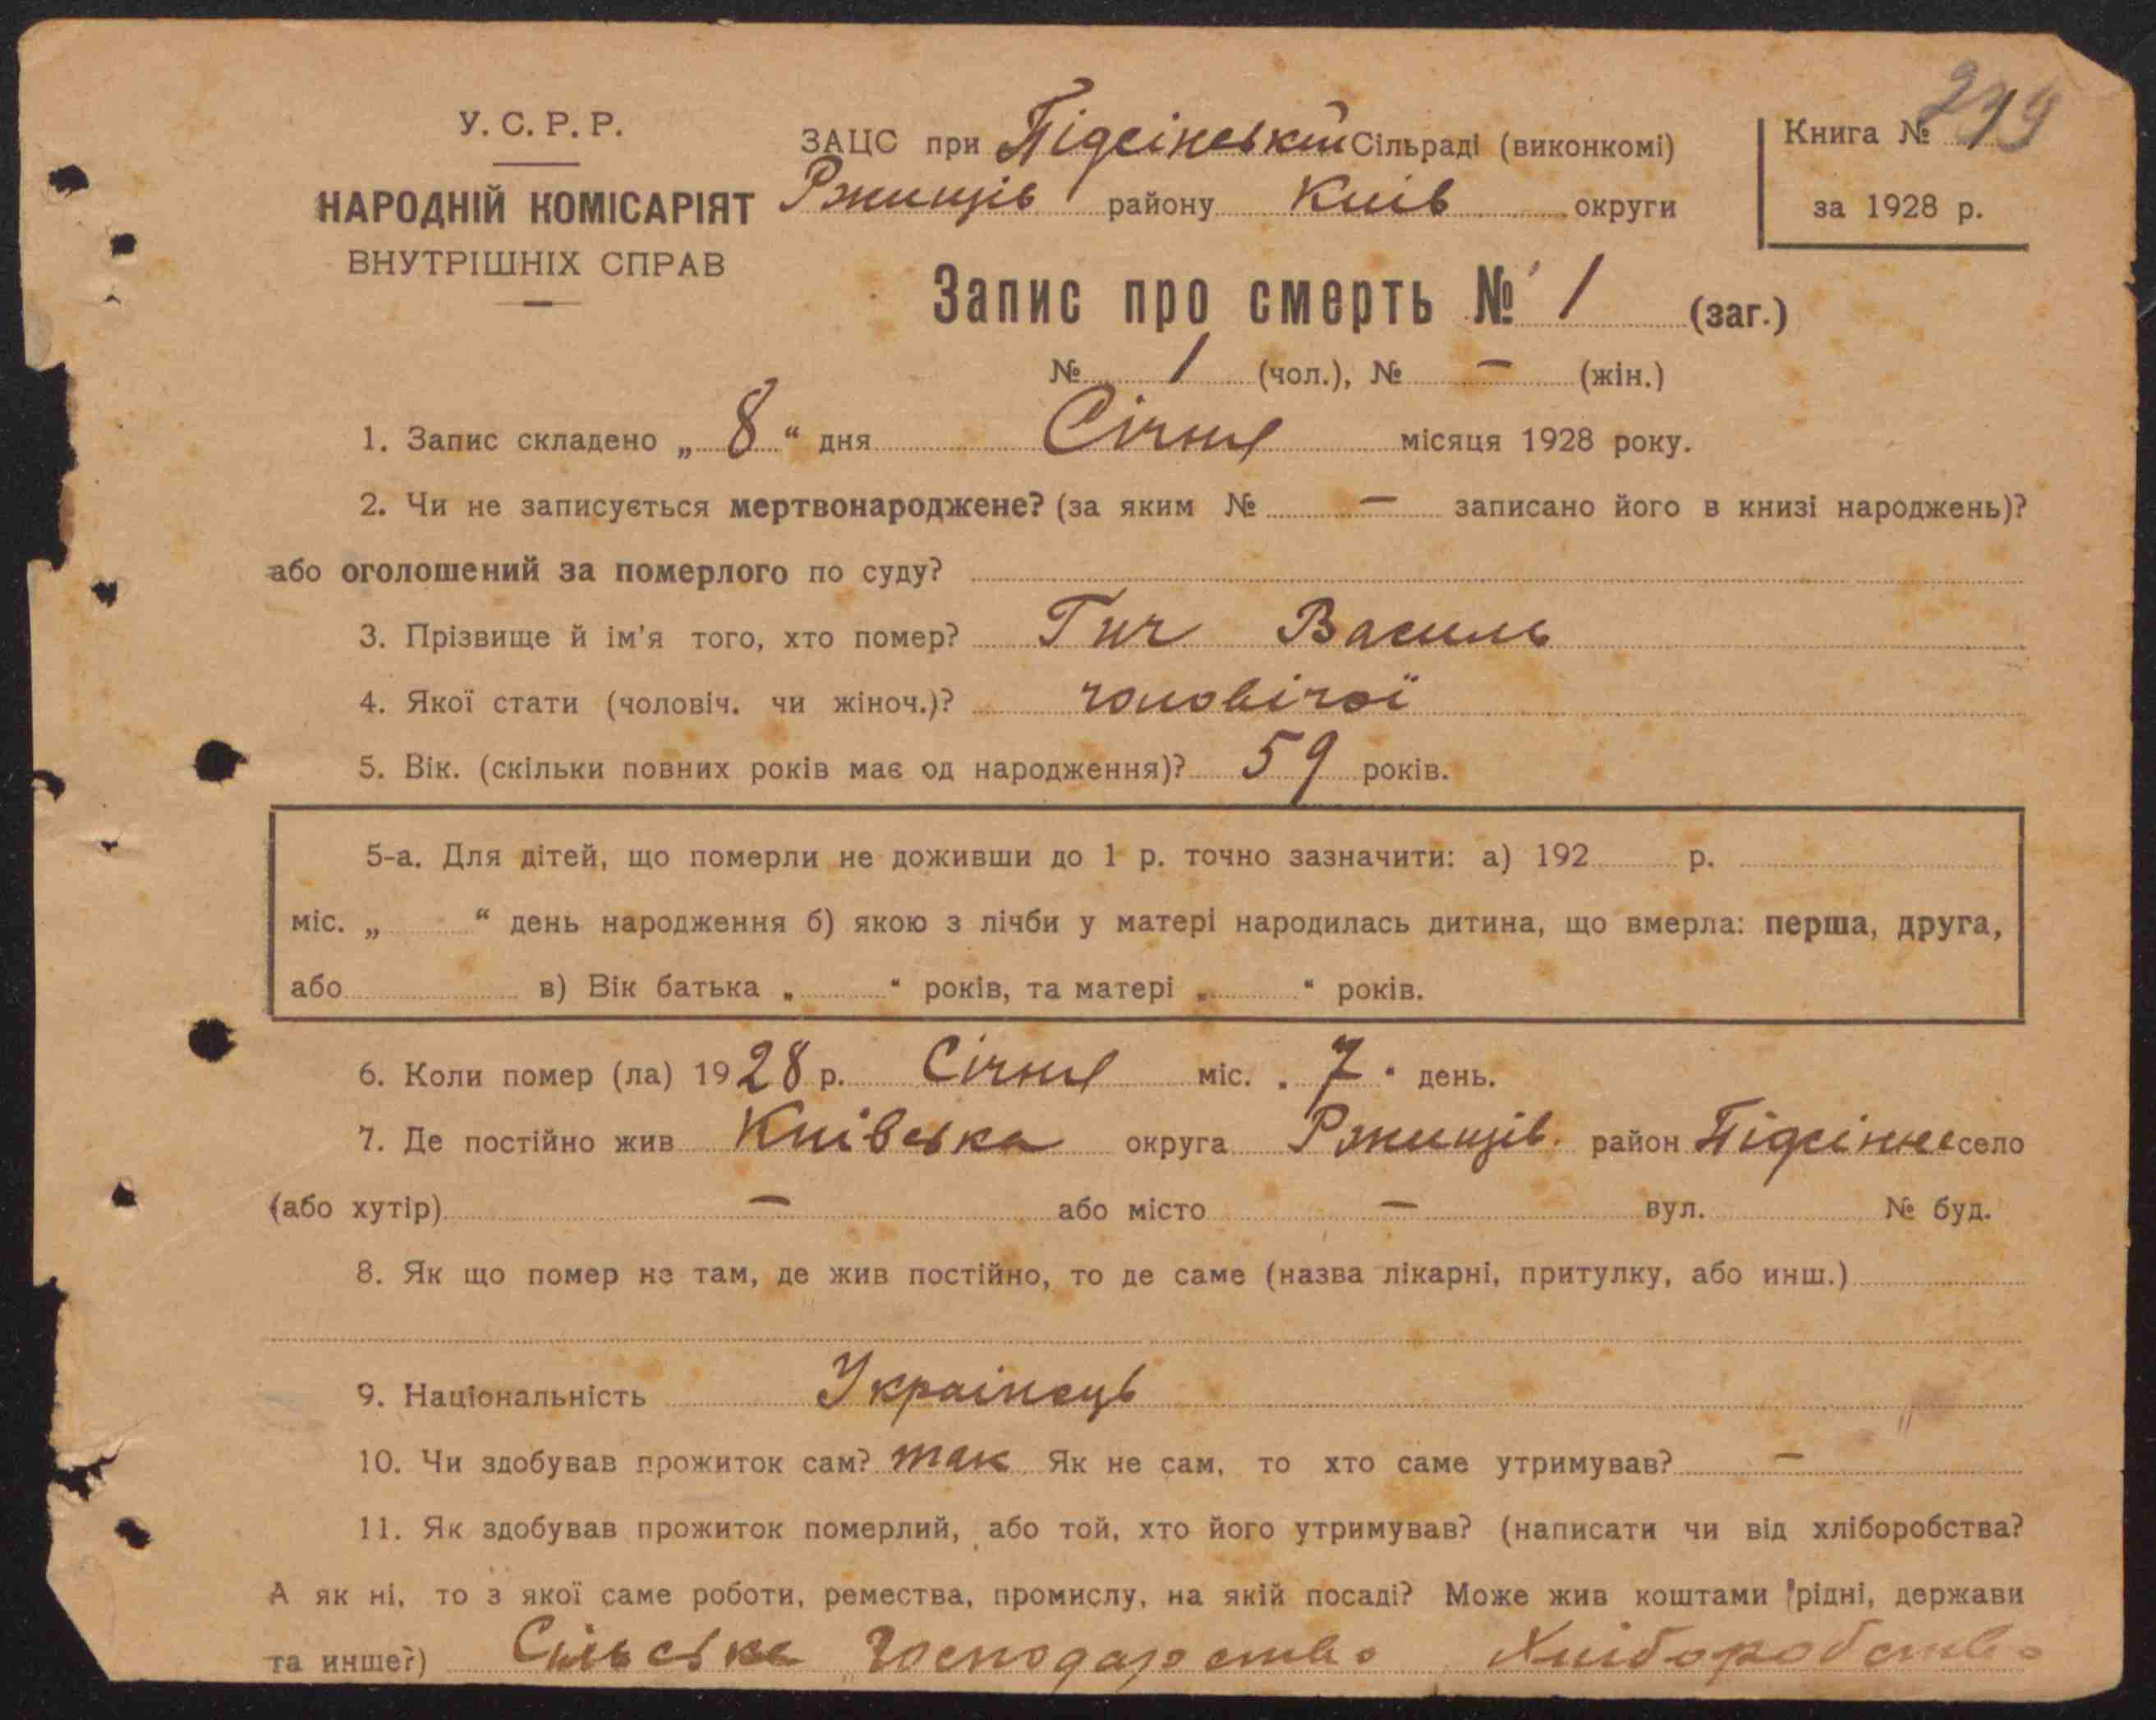 279
У. С. Р. Р.
НАРОДНІЙ КОМІСАРІЯТ
ВНУТРІШНІХ СПРАВ
ЗАЦС при Підсінській Сільраді (виконкомі)
Ржищів району Київ округи
Книга № 1
за 1928 р.
Запис про смерть № 1 (заг.)
№ 1 (чол.), № — (жін.)
1. Запис складено „ 8 “ дня Січня місяця 1928 року.
2. Чи не записується мертвонароджене? (за яким № — записано його в книзі народжень)?
або оголошений за померлого по суду?
3. Прізвище й ім'я того, хто помер? Гич Василь
4. Якої стати (чоловіч. чи жіноч.)? чоловічої
5. Вік. (скільки повних років має од народження)? 59 років.
5-а. Для дітей, що померли не доживши до 1 р. точно зазначити: а) 192 р.
міс. „ “ день народження б) якою з лічби у матері народилась дитина, що вмерла: перша, друга,
або в) Вік батька „ “ років, та матері „ “ років.
6. Коли помер (ла) 1928 р. Січня міс. „ 7 “ день.
7. Де постійно жив Київська округа Ржищів. район Підсінне село
(або хутір) — або місто — вул. № буд.
8. Як що помер не там, де жив постійно, то де саме (назва лікарні, притулку, або инш.)
9. Національність Украінець
10. Чи здобував прожиток сам? так Як не сам, то хто саме утримував? —
11. Як здобував прожиток померлий, або той, хто його утримував? (написати чи від хліборобства?
А як ні, то з якої саме роботи, ремества, промислу, на якій посаді? Може жив коштами рідні, держави
та инше?) Сільське господарство Хліборобство